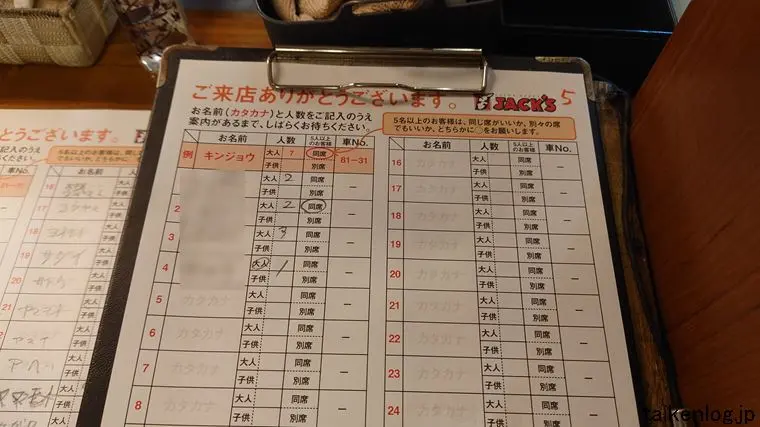 ご来店ありがとうございます。
JACK'S
5
お名前(カタカナ)と人数をご記入のうえ
案内があるまで、しばらくお待ちください。
5名以上のお客様は、同じ席がいいか、別々の席
でもいいか、どちらかに○をお願いします。
お名前 人数 5人以上のお客様 車No.
例 キンジョウ 大人 7 同席 81-31
子供 別席
大人 2 同席 －
子供 別席
2 大人 2 同席 －
子供 別席
3 大人 3 同席 －
子供 別席
4 大人 1 同席 －
子供 別席
5 カタカナ 大人 同席 －
子供 別席
6 カタカナ 大人 同席 －
子供 別席
7 カタカナ 大人 同席 －
子供 別席
8 カタカナ 大人 同席 －
子供 別席
お名前 人数 5人以上のお客様 車No.
16 カタカナ 大人 同席 －
子供 別席
17 カタカナ 大人 同席 －
子供 別席
18 カタカナ 大人 同席 －
子供 別席
19 カタカナ 大人 同席 －
子供 別席
20 カタカナ 大人 同席 －
子供 別席
21 カタカナ 大人 同席 －
子供 別席
22 カタカナ 大人 同席 －
子供 別席
23 カタカナ 大人 同席 －
子供 別席
24 カタカナ 大人 同席 －
うございます。
ご記入のうえ
お待ちください。
5名以上のお客様は、
でもいいか、どちらかに
車No. お名前
16 大人
子供
17 大人
子供
18 大人
子供
19 大人
子供
20 大人
子供
21 大人
子供
22 大人
子供
大人
子供
taikenlog.jp